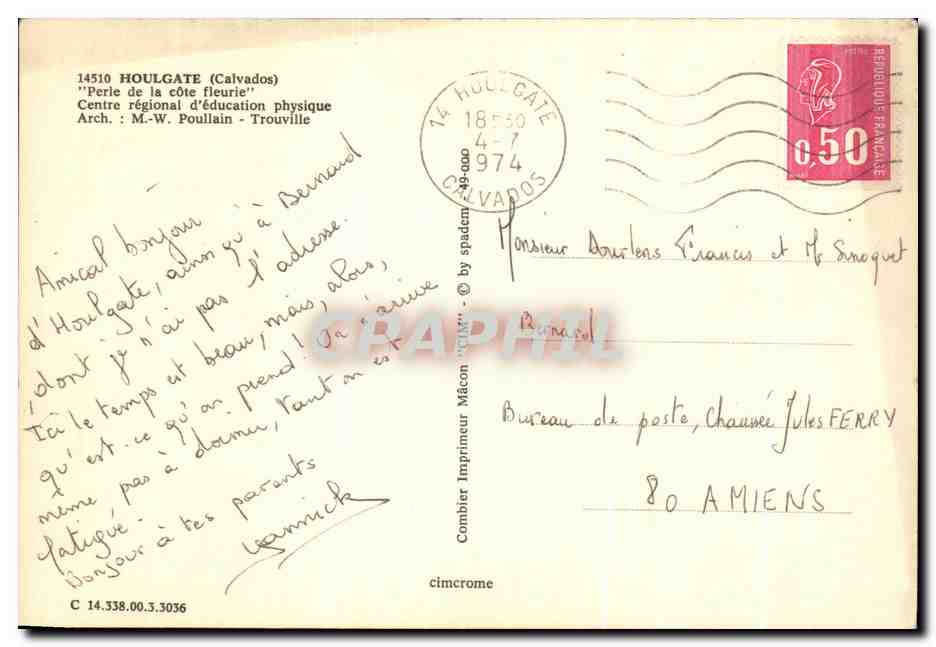 14510 HOULGATE (Calvados)
"Perle de la côte fleurie"
Centre régional d'éducation physique
Arch. : M.-W. Poullain - Trouville
Amical bonjour
d'Houlgate, ainsi qu'à Bernard
, dont je n'ai pas l'adresse.
Ici le temps est beau, mais, alors,
qu'est-ce qu'on prend ! On n'arrive
même pas à dormir, tant on est
fatigué.
Bonjour à tes parents
Yannick
C 14.338.00.3.3036
cimcrome
Combier Imprimeur Mâcon "CIM" - © by spadem 49-000
14 HOULGATE
18H30
4-7
1974
CALVADOS
POSTES
RÉPUBLIQUE FRANÇAISE
0,50
Monsieur Dourlens Francis et Mr Sinoquet
Bernard
Bureau de poste, Chaussée Jules FERRY
80 AMIENS
CPARPHIL